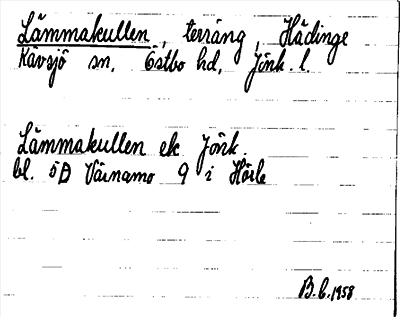 Lämmakullen, terräng, Hädinge
Kävsjö sn, Östbo hd, Jönk. l.
Lämmakullen ek. Jönk.
bl. öD Värnamo 9 i Hörle
B.C. 1958